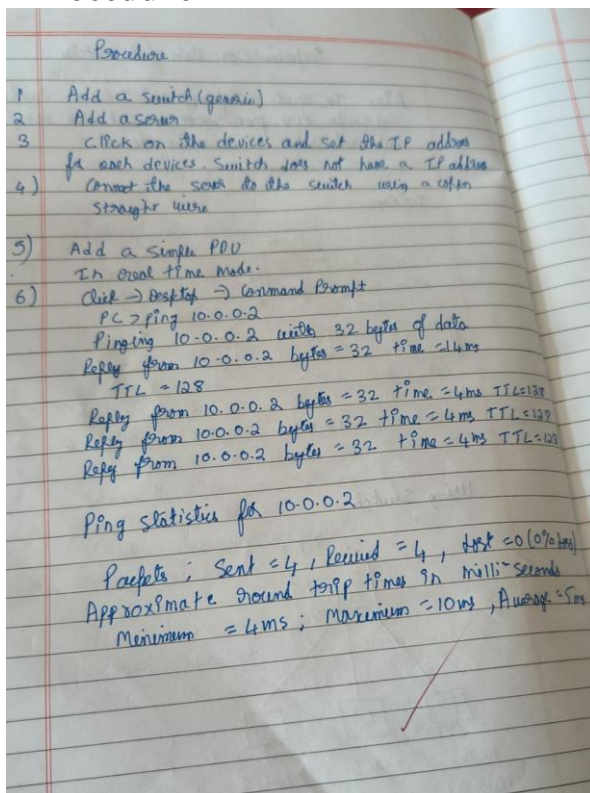 Procedure
1 Add a switch (generic)
2 Add a server
3 Click on the devices and set the IP address
for each devices. Switch does not have a IP address
4) Connect the server to the switch using a copper
straight wire
5) Add a simple PDU
In real time mode.
6) Click → Desktop → Command Prompt
PC > ping 10.0.0.2
Pinging 10.0.0.2 with 32 bytes of data
Reply from 10.0.0.2 bytes = 32 time = 14ms
TTL = 128
Reply from 10.0.0.2 bytes = 32 time = 4ms TTL=128
Reply from 10.0.0.2 bytes = 32 time = 4ms TTL=128
Reply from 10.0.0.2 bytes = 32 time = 4ms TTL=128
Ping statistics for 10.0.0.2
Packets ; Sent = 4, Received = 4, Lost = 0 (0% loss)
Approximate round trip times in milli-seconds
Minimum = 4ms ; Maximum = 10ms , Average = 5ms